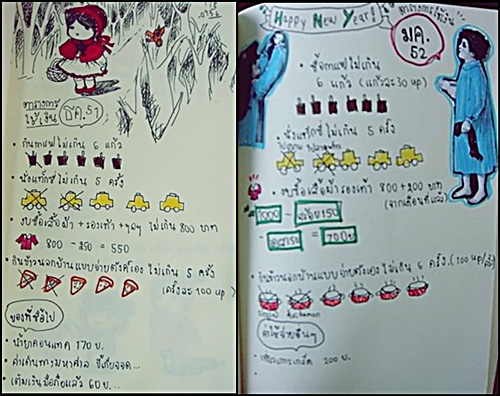 ตารางการ
ใช้เงิน ธค.51
• กินกาแฟไม่เกิน 6 แก้ว
• นั่งแท็กซี่ไม่เกิน 5 ครั้ง
• งบซื้อเสื้อผ้า + รองเท้า + ไม่เกิน 800 บาท
800 - 250 = 550
• กินข้าวนอกบ้านแบบจ่ายตังค์เอง ไม่เกิน 5 ครั้ง
(ครั้งละ 100 up)
ของที่ซื้อไป
• น้ำยาคอนแทค 170 บ.
• ค่าเดินทางมหาศาล ขี้เกียจจด...
• เติมเงินมือถือแล้ว 60 บ...
Happy New Year!
ตารางการใช้เงิน
มค.
52
• ซื้อกาแฟไม่เกิน
6 แก้ว (แก้วละ 30 up)
• นั่งแท็กซี่ไม่เกิน 5 ครั้ง
• งบซื้อเสื้อผ้ารองเท้า 800 + 200 บาท
(จากเดือนที่แล้ว)
1000 -
=
• กินข้าวนอกบ้านแบบจ่ายตังค์เอง ไม่เกิน 6 ครั้ง. (100 up/ครั้ง)
ค่าใช้จ่ายอื่นๆ
200 บ.